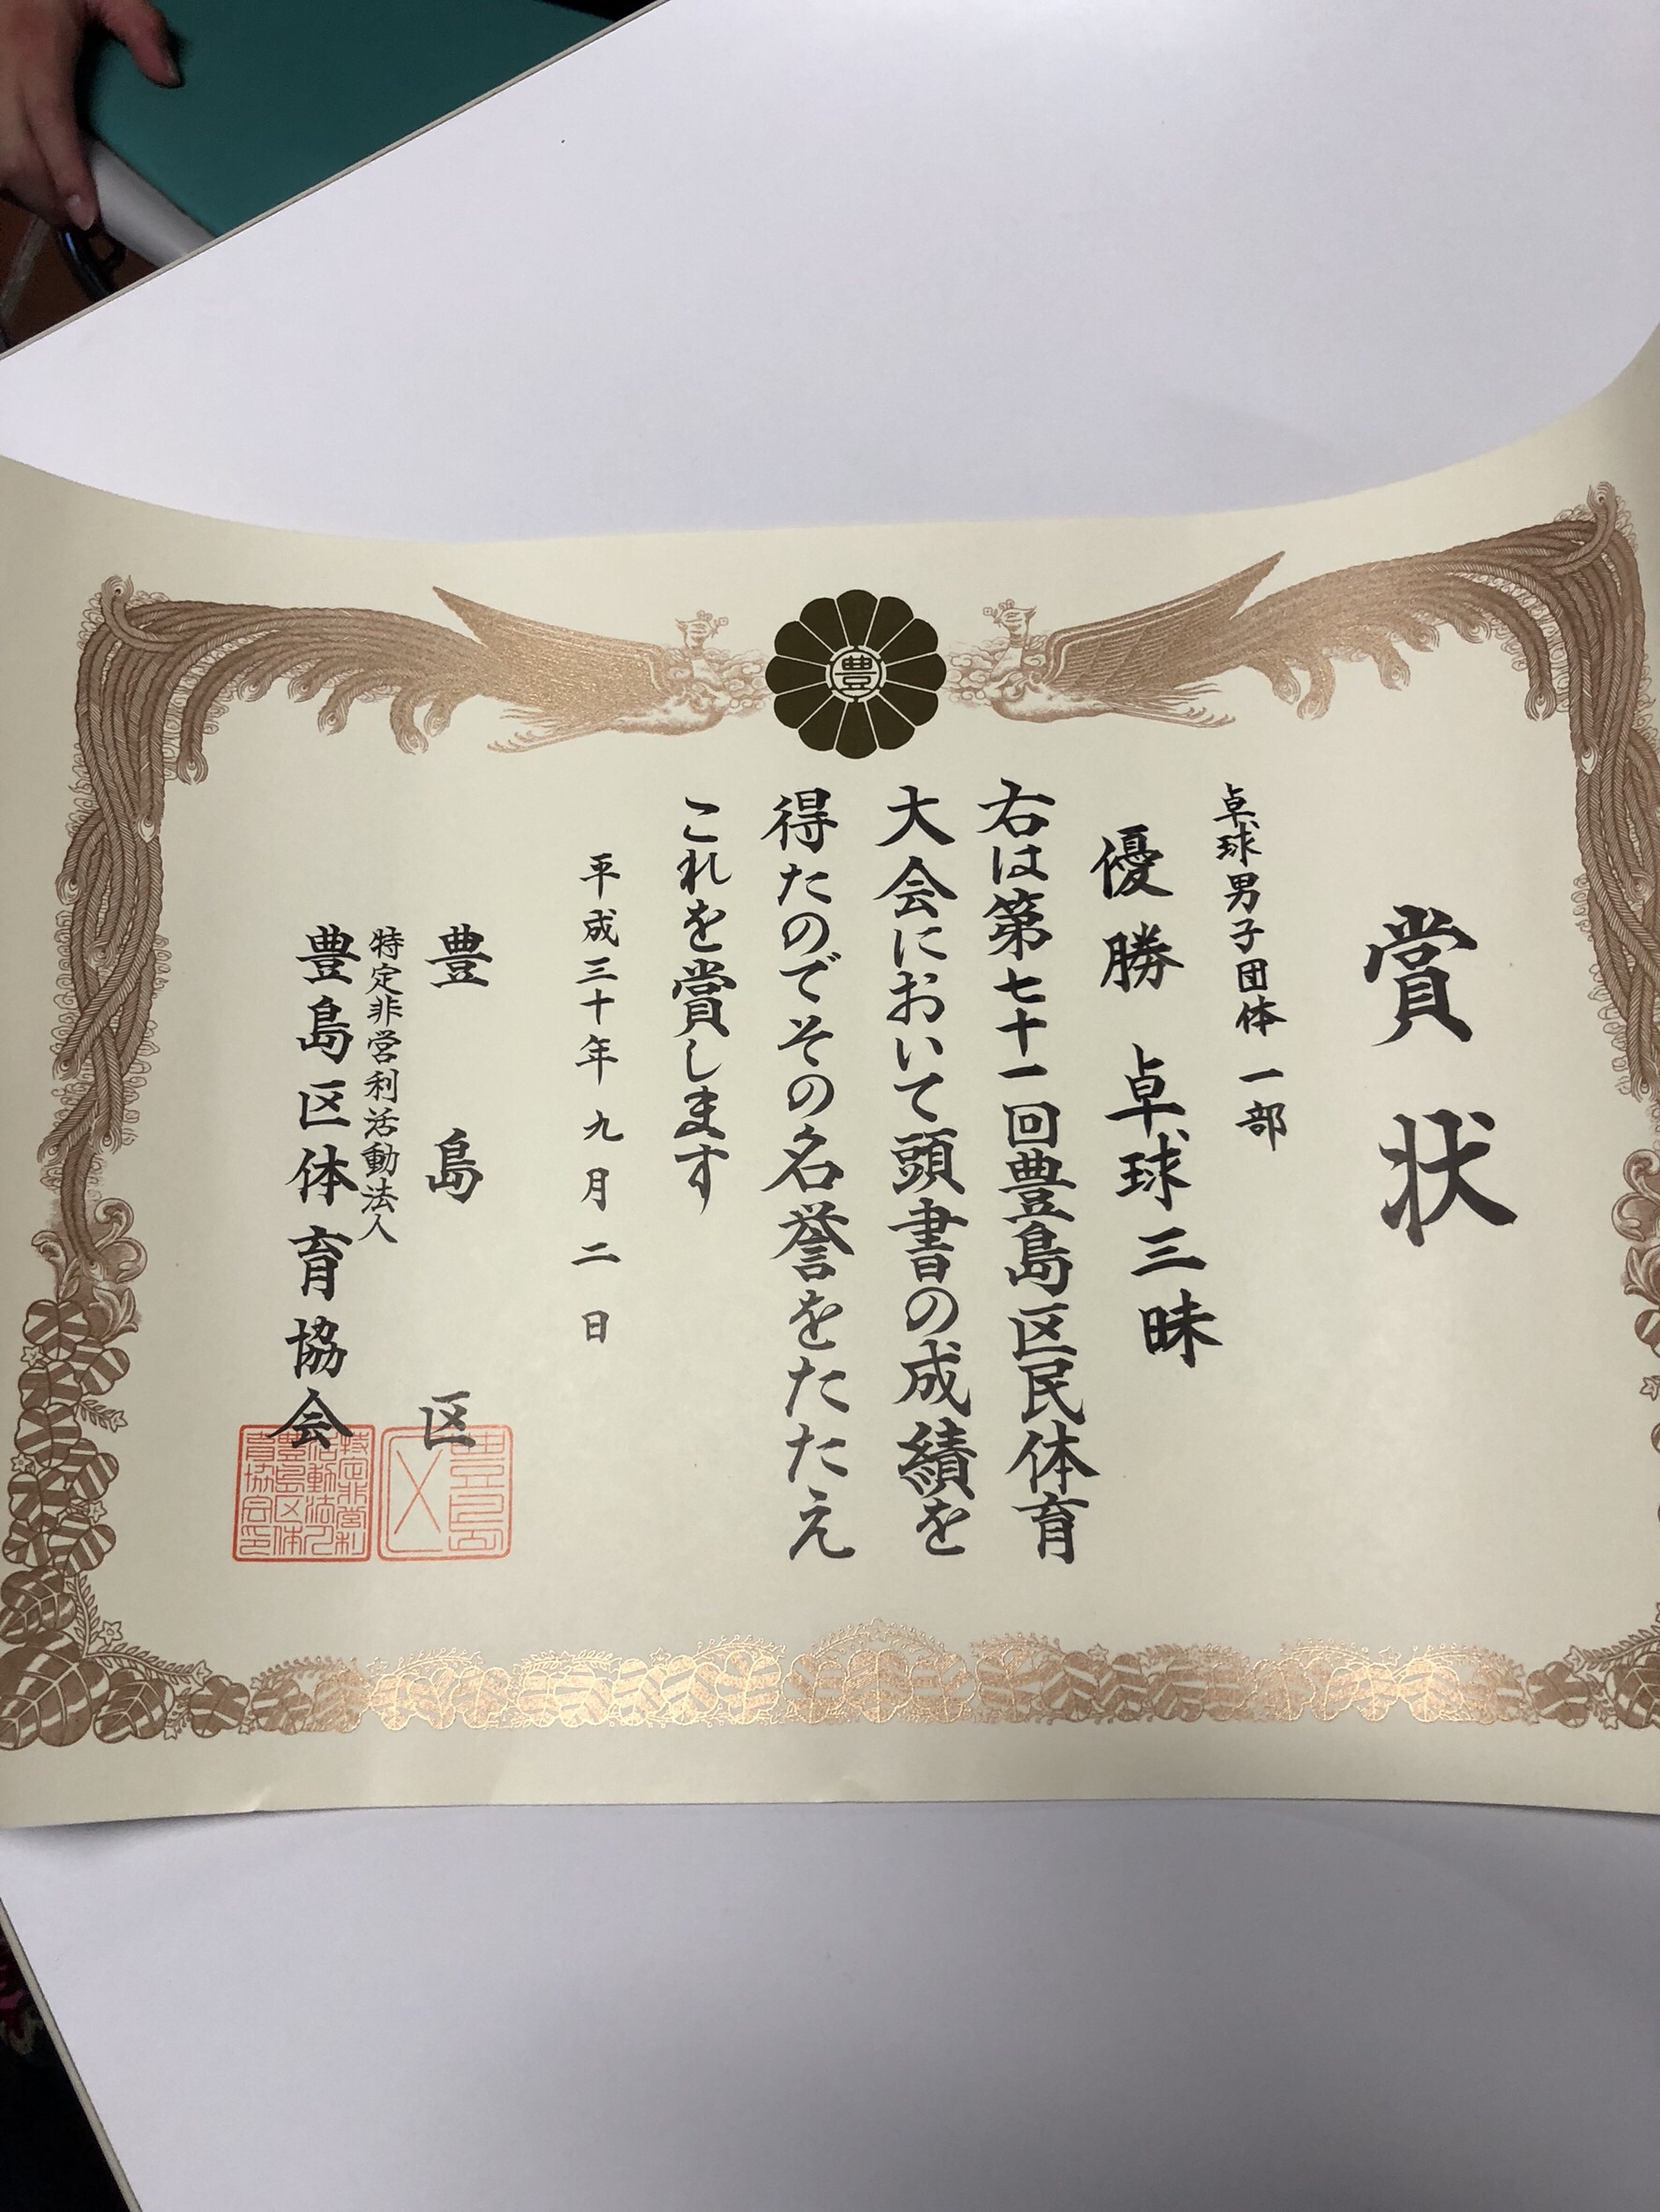 賞状
卓球男子団体一部
優勝 卓球三昧
右は第七十一回豊島区民体育
大会において頭書の成績を
得たのでその名誉をたたえ
これを賞します
平成三十年九月二日
豊島区
特定非営利活動法人
豊島区体育協会
豊
豊島区
特定非営利
活動法人
豊島区体
育協会印